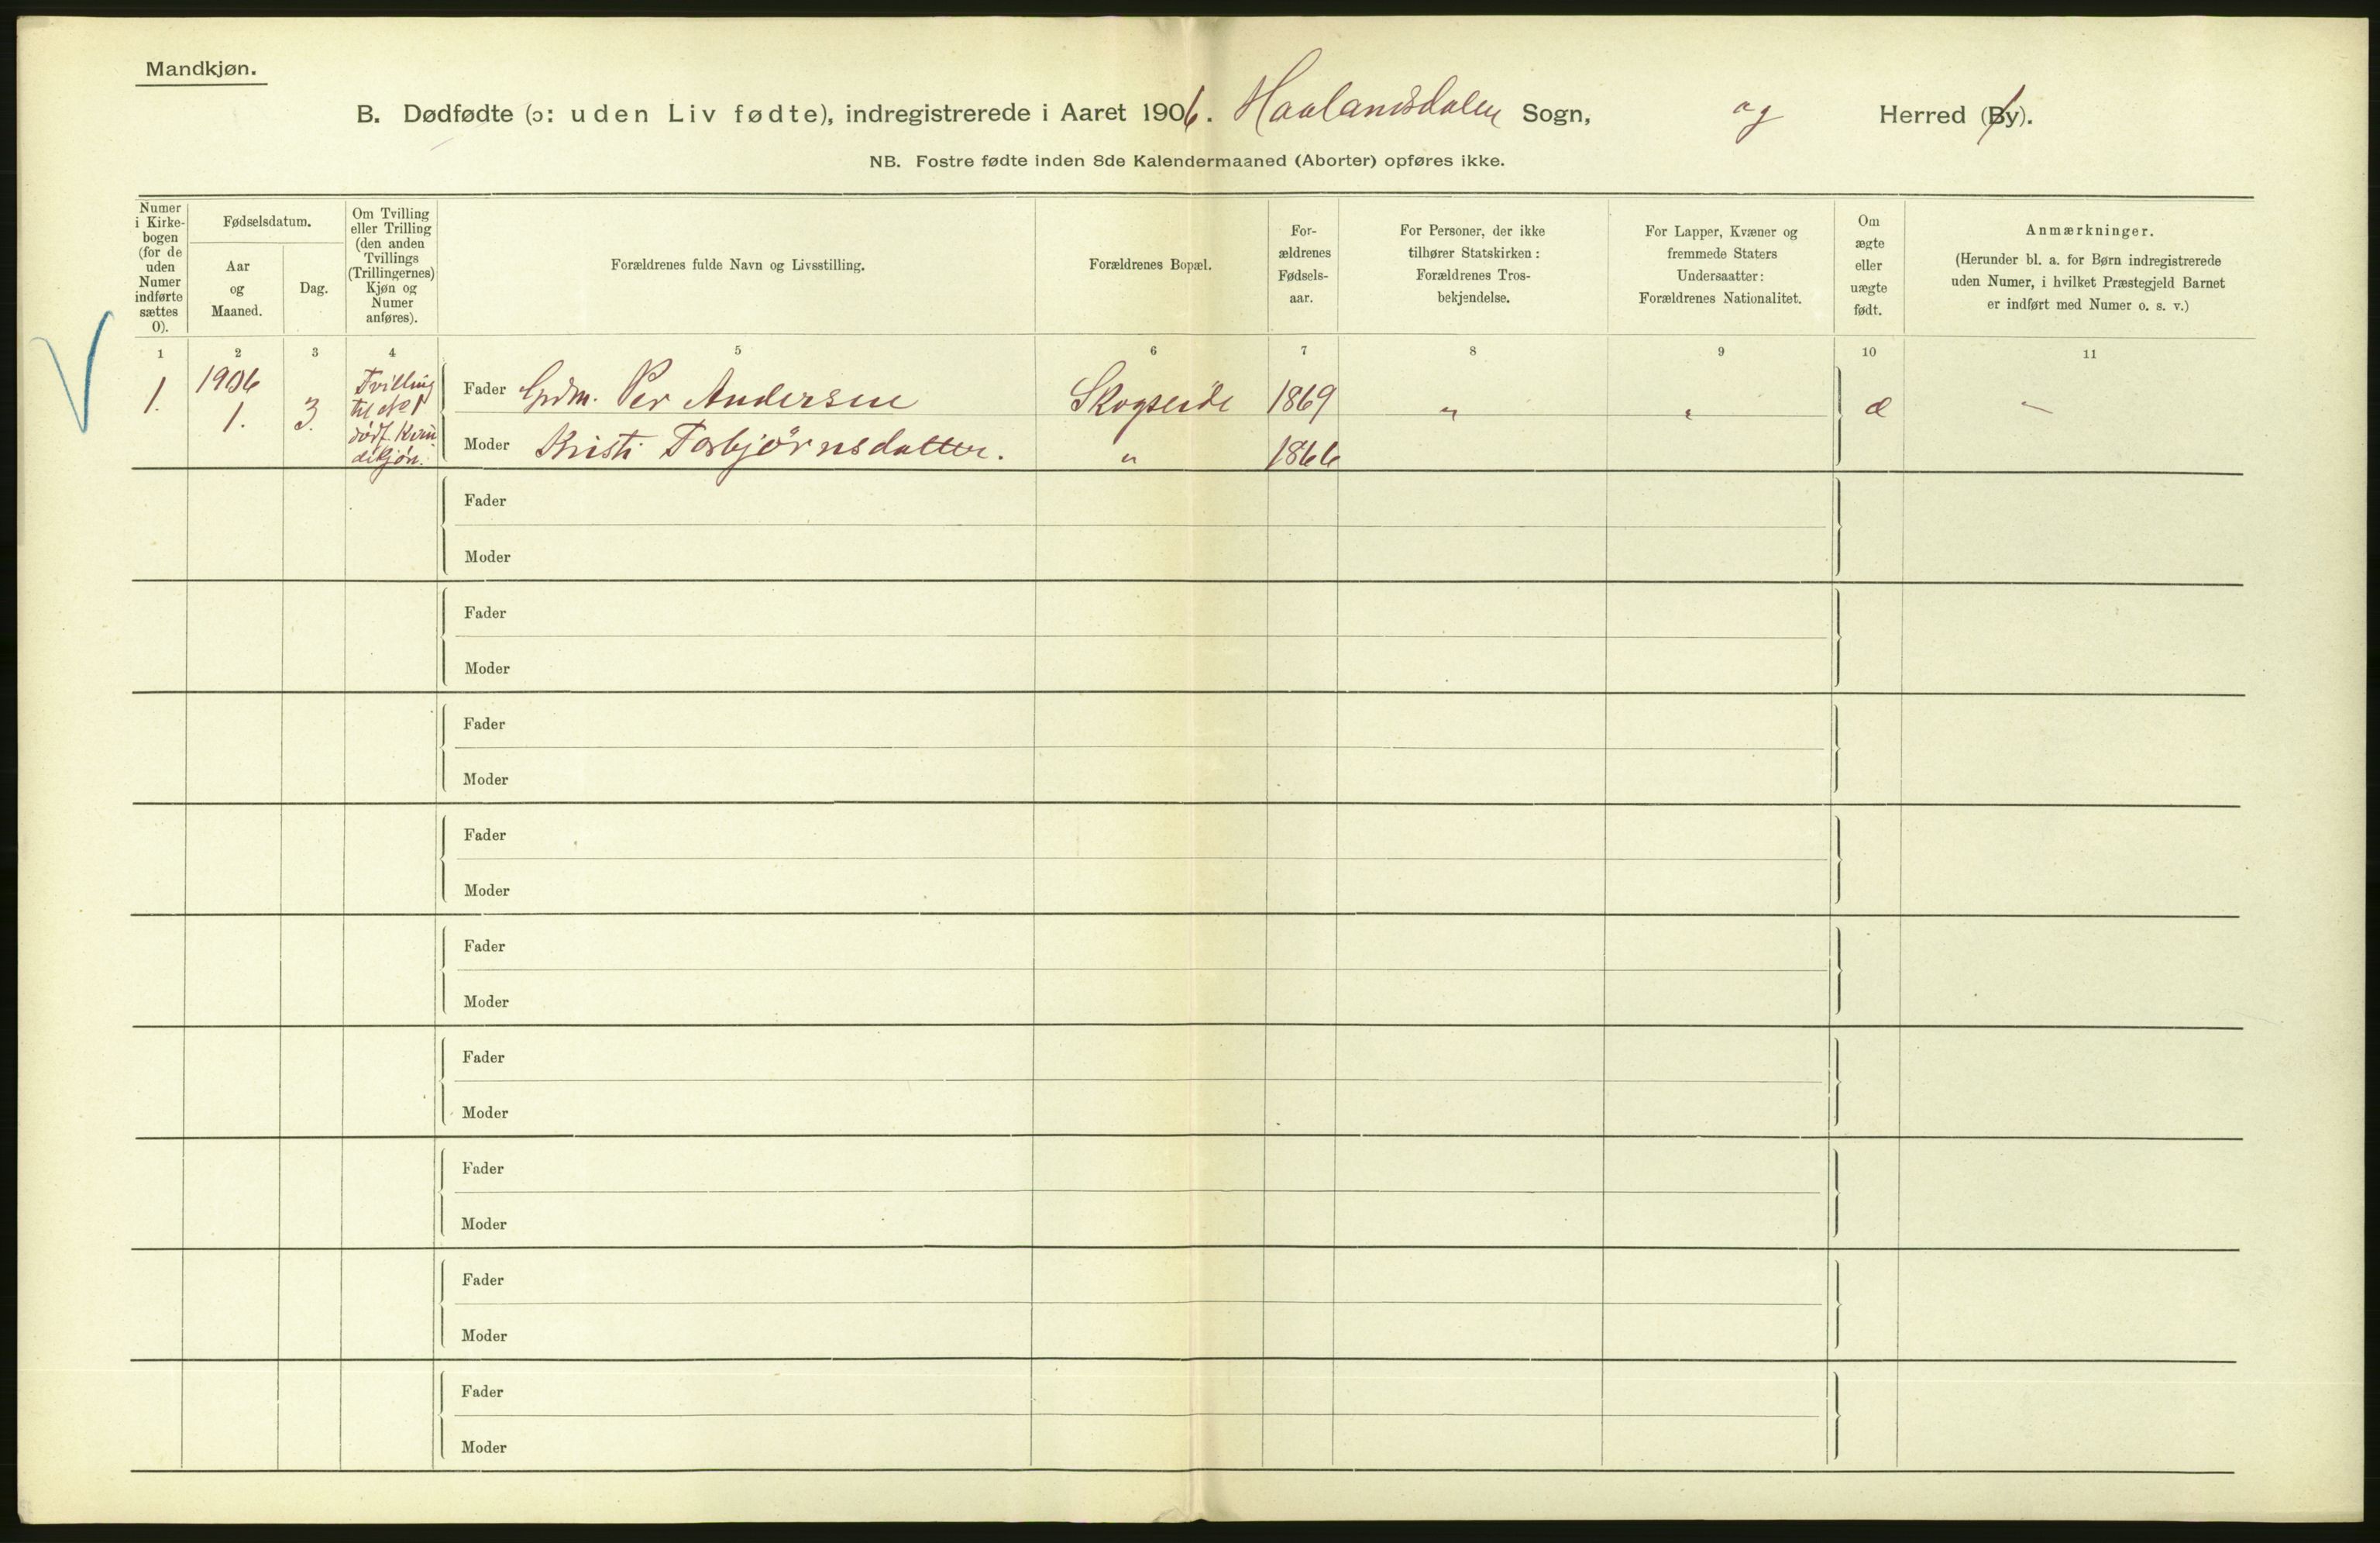 Mandkjøn.
B. Dødfødte (ɔ: uden Liv fødte), indregistrerede i Aaret 1906. Haalandsdalen Sogn, og Herred (By).
NB. Fostre fødte inden 8de Kalendermaaned (Aborter) opføres ikke.
Numer
i Kirke-
bogen
(for de
uden
Numer
indførte
sættes
0).
Fødselsdatum.
Aar
og
Maaned.
Dag.
Om Tvilling
eller Trilling
(den anden
Tvillings
(Trillingernes)
Kjøn og
Numer
anføres).
Forældrenes fulde Navn og Livsstilling.
Forældrenes Bopæl.
For-
ældrenes
Fødsels-
aar.
For Personer, der ikke
tilhører Statskirken:
Forældrenes Tros-
bekjendelse.
For Lapper, Kvæner og
fremmede Staters
Undersaatter:
Forældrenes Nationalitet.
Om
ægte
eller
uægte
født.
Anmærkninger.
(Herunder bl. a. for Børn indregistrerede
uden Numer, i hvilket Præstegjeld Barnet
er indført med Numer o. s. v.)
1 2 3 4 5 6 7 8 9 10 11
1.
1906
1.
3.
Tvilling
til No 1
dødf. Kvin
dekjøn.
Fader Grdm. Per Andersen Skogseide 1869 " " æ —
Moder Kristi Torbjørnsdatter. " 1866
Fader
Moder
Fader
Moder
Fader
Moder
Fader
Moder
Fader
Moder
Fader
Moder
Fader
Moder
Fader
Moder
Fader
Moder